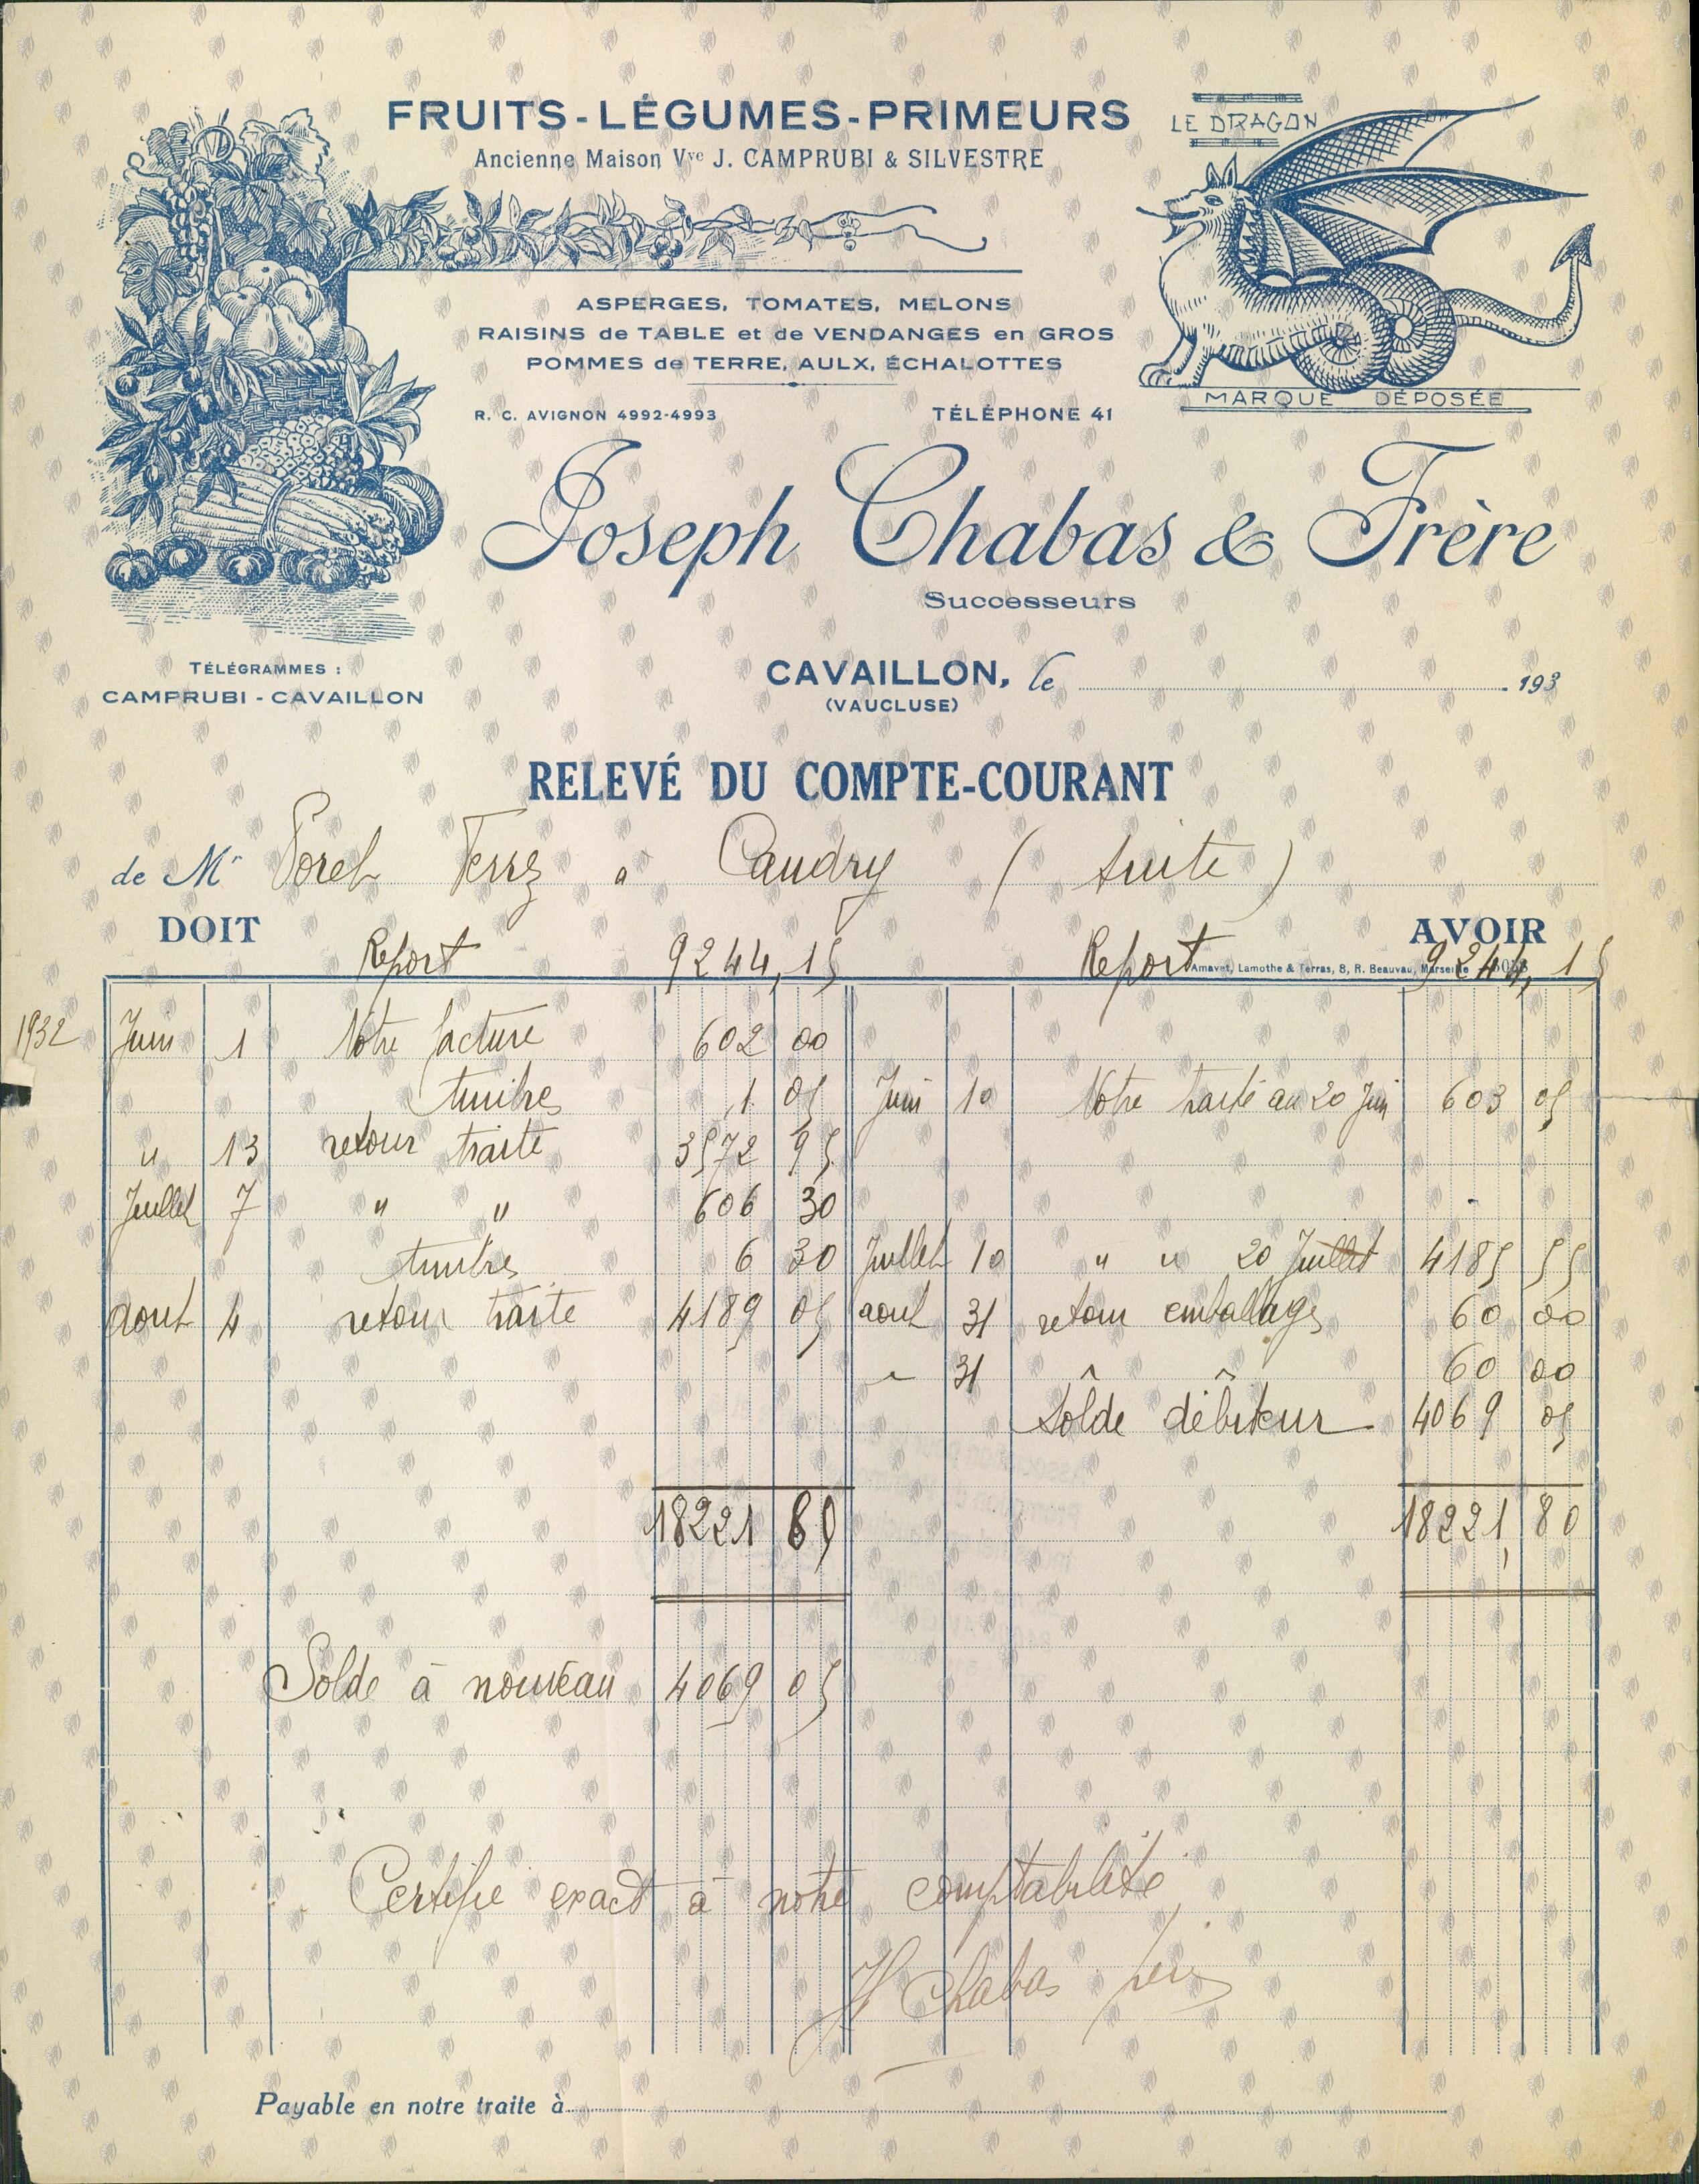 FRUITS-LÉGUMES-PRIMEURS
LE DRAGON
Ancienne Maison Vve J. CAMPRUBI & SILVESTRE
ASPERGES, TOMATES, MELONS
RAISINS de TABLE et de VENDANGES en GROS
POMMES de TERRE, AULX, ÉCHALOTTES
MARQUE DÉPOSÉE
R. C. AVIGNON 4992-4993 TÉLÉPHONE 41
Joseph Chabas & Frère
Successeurs
TÉLÉGRAMMES :
CAMPRUBI - CAVAILLON
CAVAILLON, le 193
(VAUCLUSE)
RELEVÉ DU COMPTE-COURANT
de Mr à Caudry (suite)
DOIT AVOIR
Report 9244,15 Report 9244,15
Amavet, Lamothe & Terras, 8, R. Beauvau, Marseille
1932 Juin 1 Notre facture 602 00
timbres 1 05 Juin 10 Notre traite au 20 Juin 603 05
" 13 retour traite 3572 95
Juillet 7 " " 606 30
timbres 6 30 Juillet 10 " " 20 Juillet 4185 55
aout 4 retour traite 4189 05 aout 31 retour emballages 60 00
" 31 " " 60 00
Solde débiteur 4069 05
18221 80 18221,80
Solde à nouveau 4069 05
Certifié exact à notre comptabilité
Chabas
Payable en notre traite à